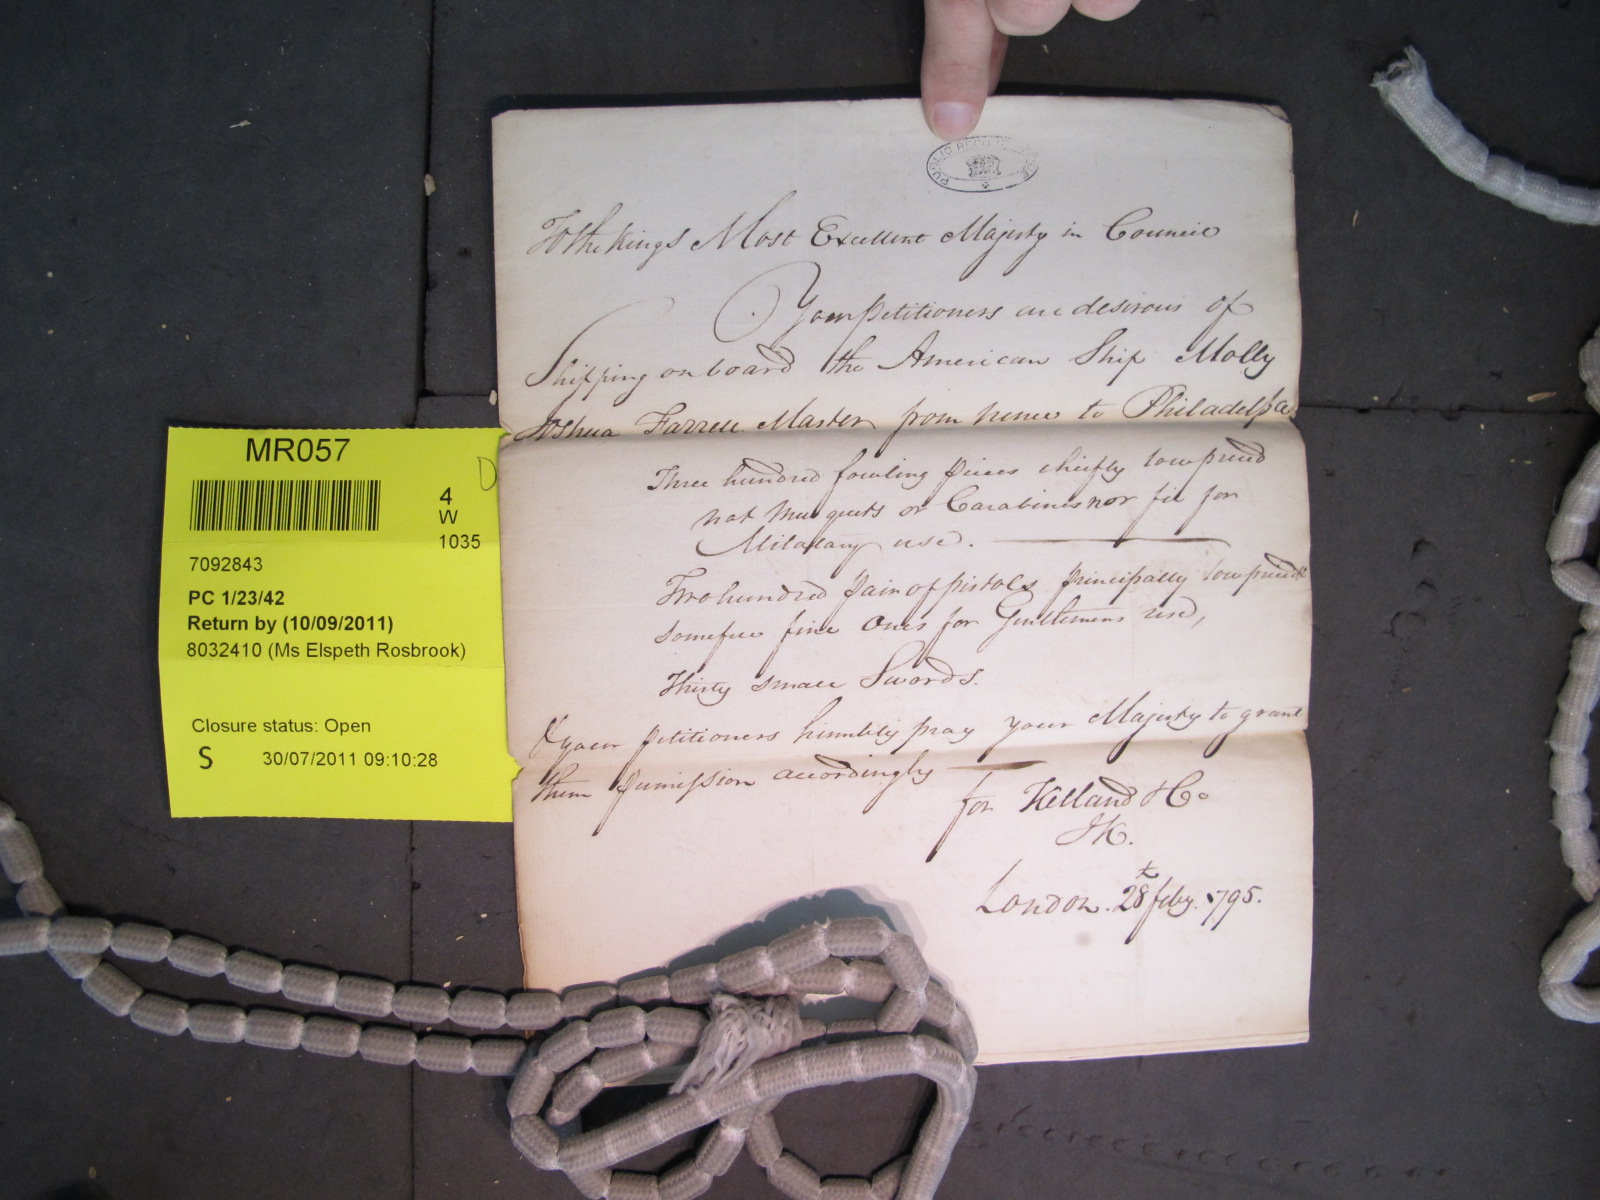 PUBLIC RECORD OFFICE
To the Kings Most Excellent Majesty in Council
Your Petitioners are desirous of
Shipping on board the American Ship Molly
Joshua Farrell Master from hence to Philadelpa
Three hundred fowling pieces chiefly low priced
not Musquets or Carabines nor fit for
Miliatary use.
Two hundred pair of pistols principally low priced
some few fine Ones for Gentlemens use,
Thirty small Swords.
& your petitioners humbly pray your Majesty to grant
them permission accordingly
for Kelland & Co
JK.
London. 28th feby. 1795.
MR057
D
4
W
1035
7092843
PC 1/23/42
Return by (10/09/2011)
8032410 (Ms Elspeth Rosbrook)
Closure status: Open
S 30/07/2011 09:10:28